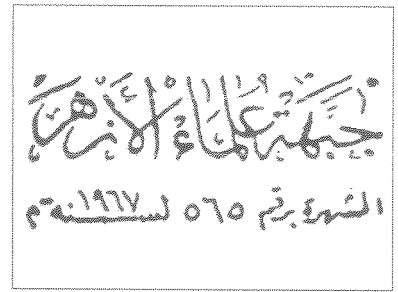 جَبهَة عُلَماءِ الأَزهَر
المشهرة برقم ٥٦٥ لسنة ١٩٦٧م